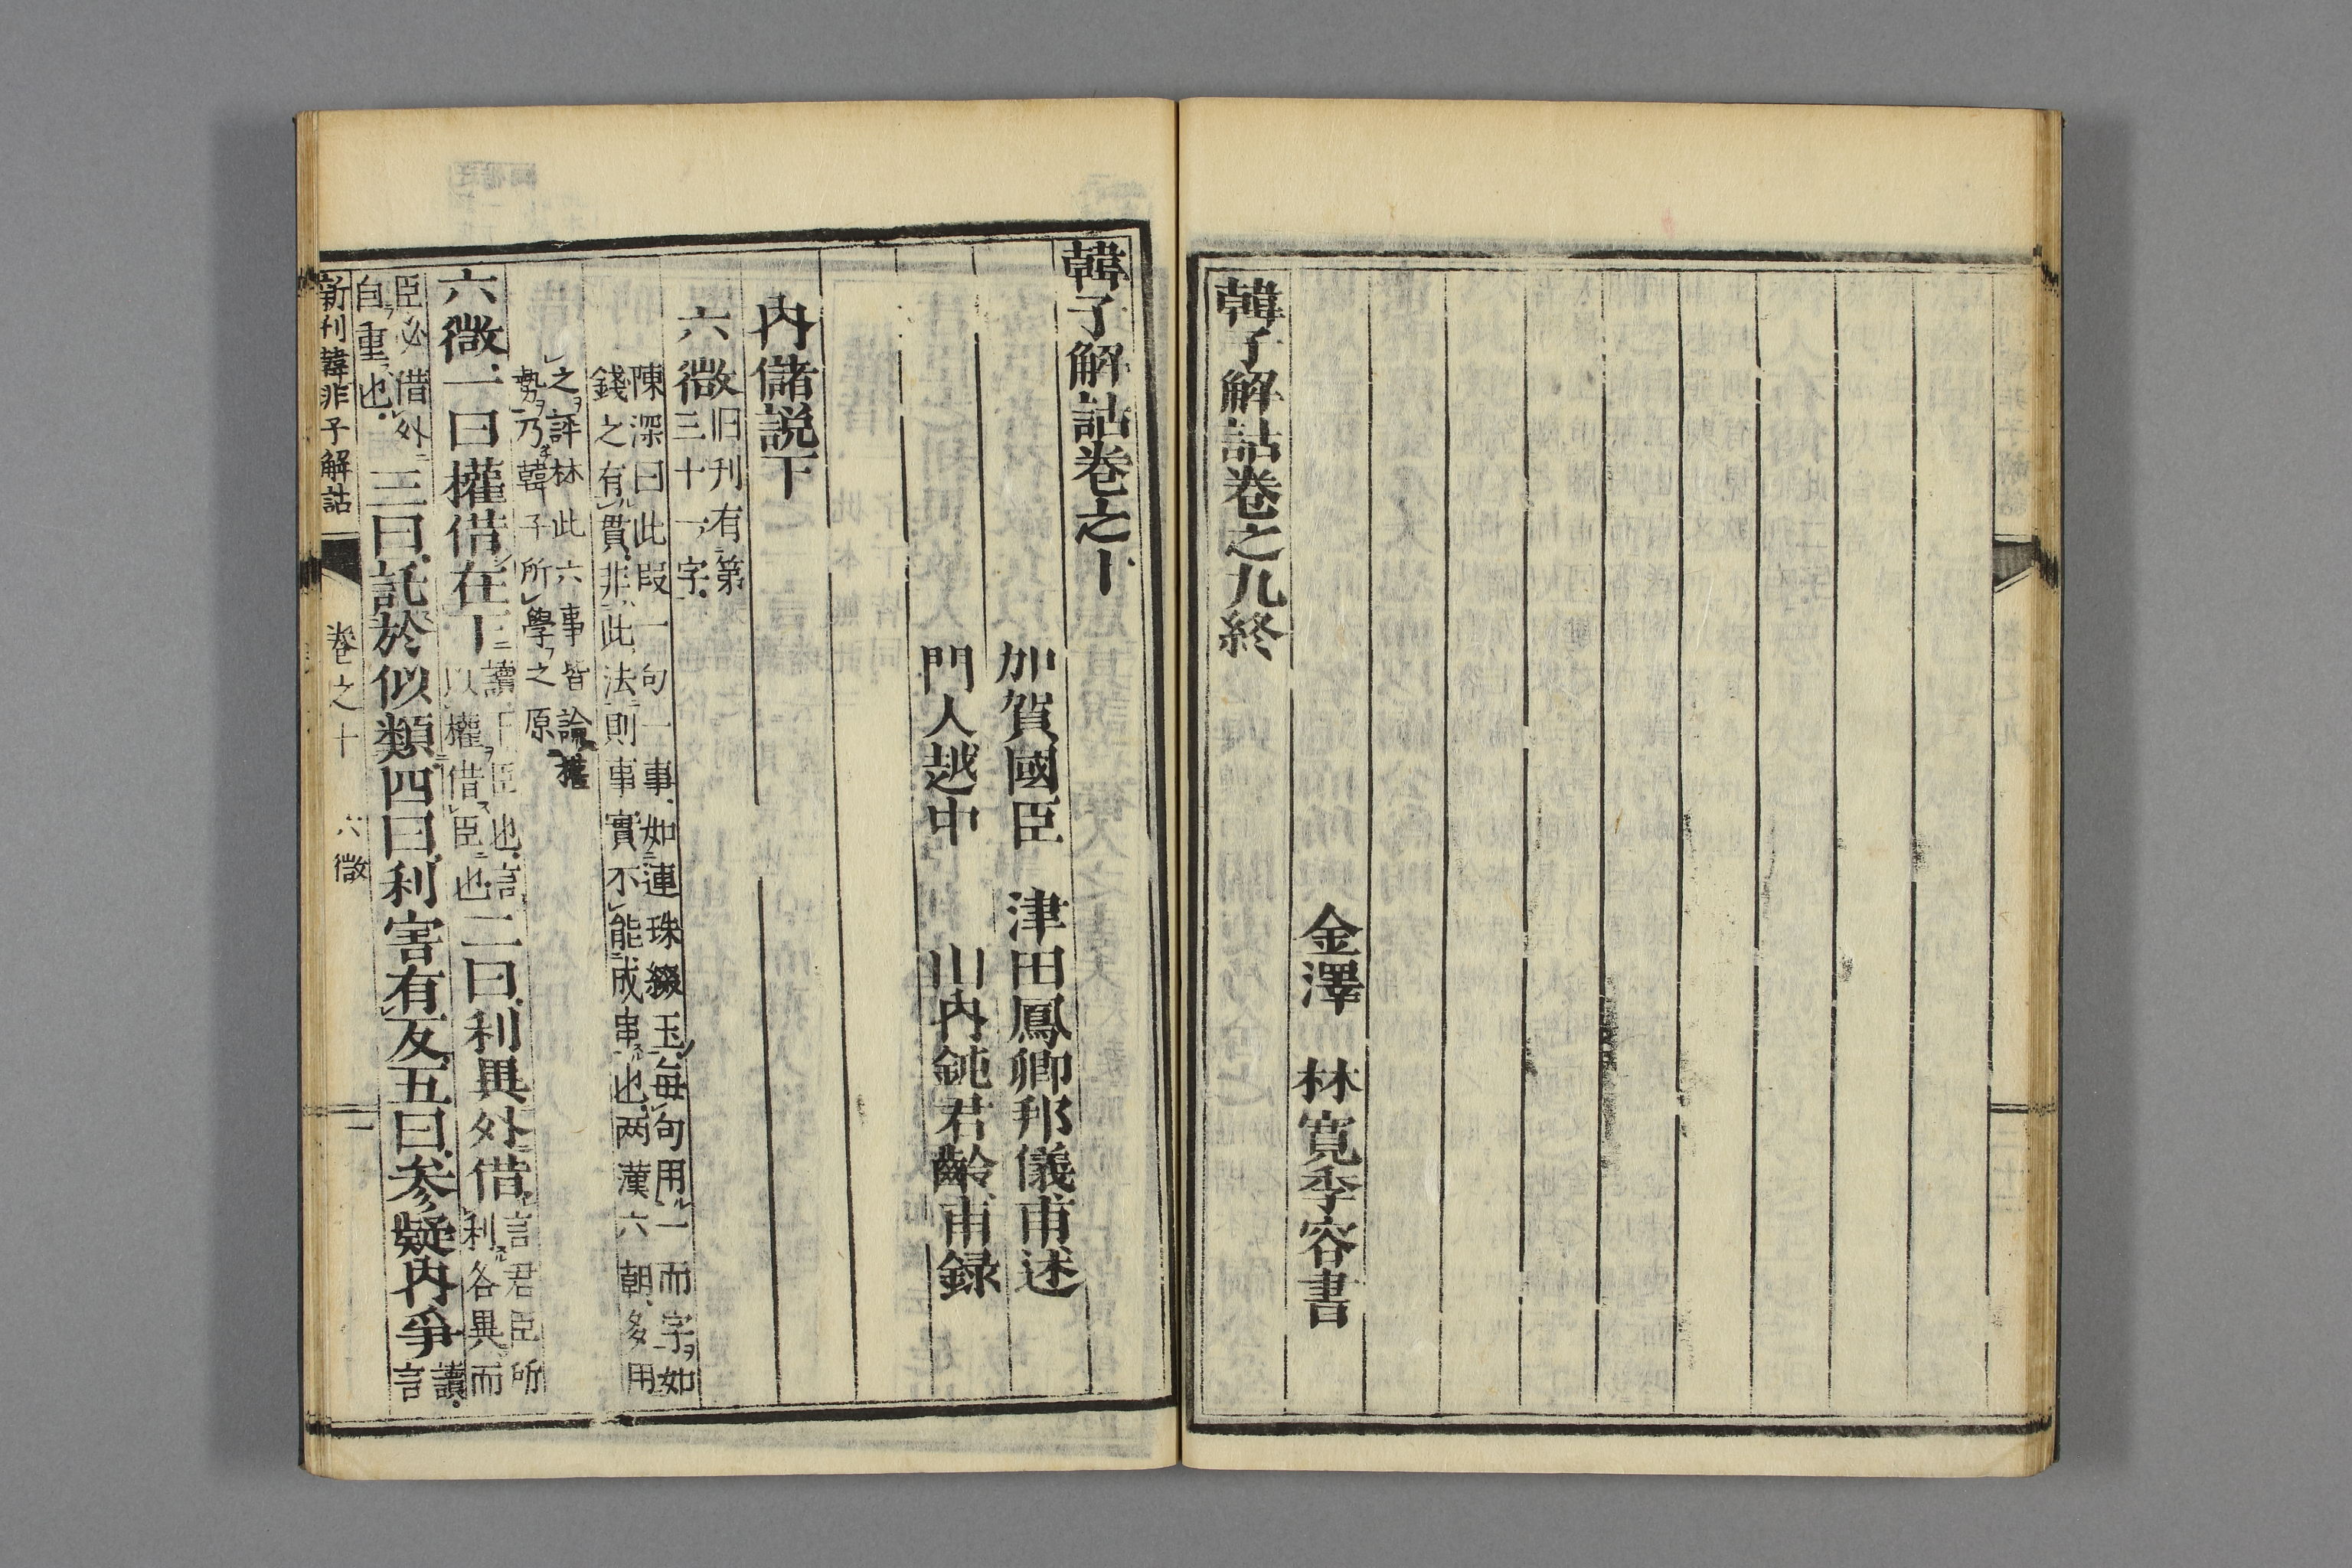 韓子解詁卷之九終
金澤 林寬季容書
韓子解詁卷之十
加賀國臣 津田鳳卿邦儀甫述
門人越中 山內鈍君齡甫録
內儲説下
六微
旧刊有第
三十一字
陳深曰此段一句一事如連珠綴玉每句用一而字如
錢之有貫非此法則事實不能成串也両漢六朝多用
之評林此六事皆論權
勢乃韓子所學之原
六微一曰權借在下
讀下臣也言
以權借臣也
二曰利異外借
言君臣所
利各異而
臣必借外
自重也
三曰託於似類四曰利害有反五曰参疑內爭
讀
言
新刊韓非子解詁 卷之十 六微 一